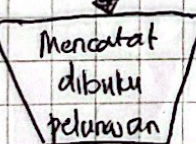 Mencatat
dibuku
pelunasan